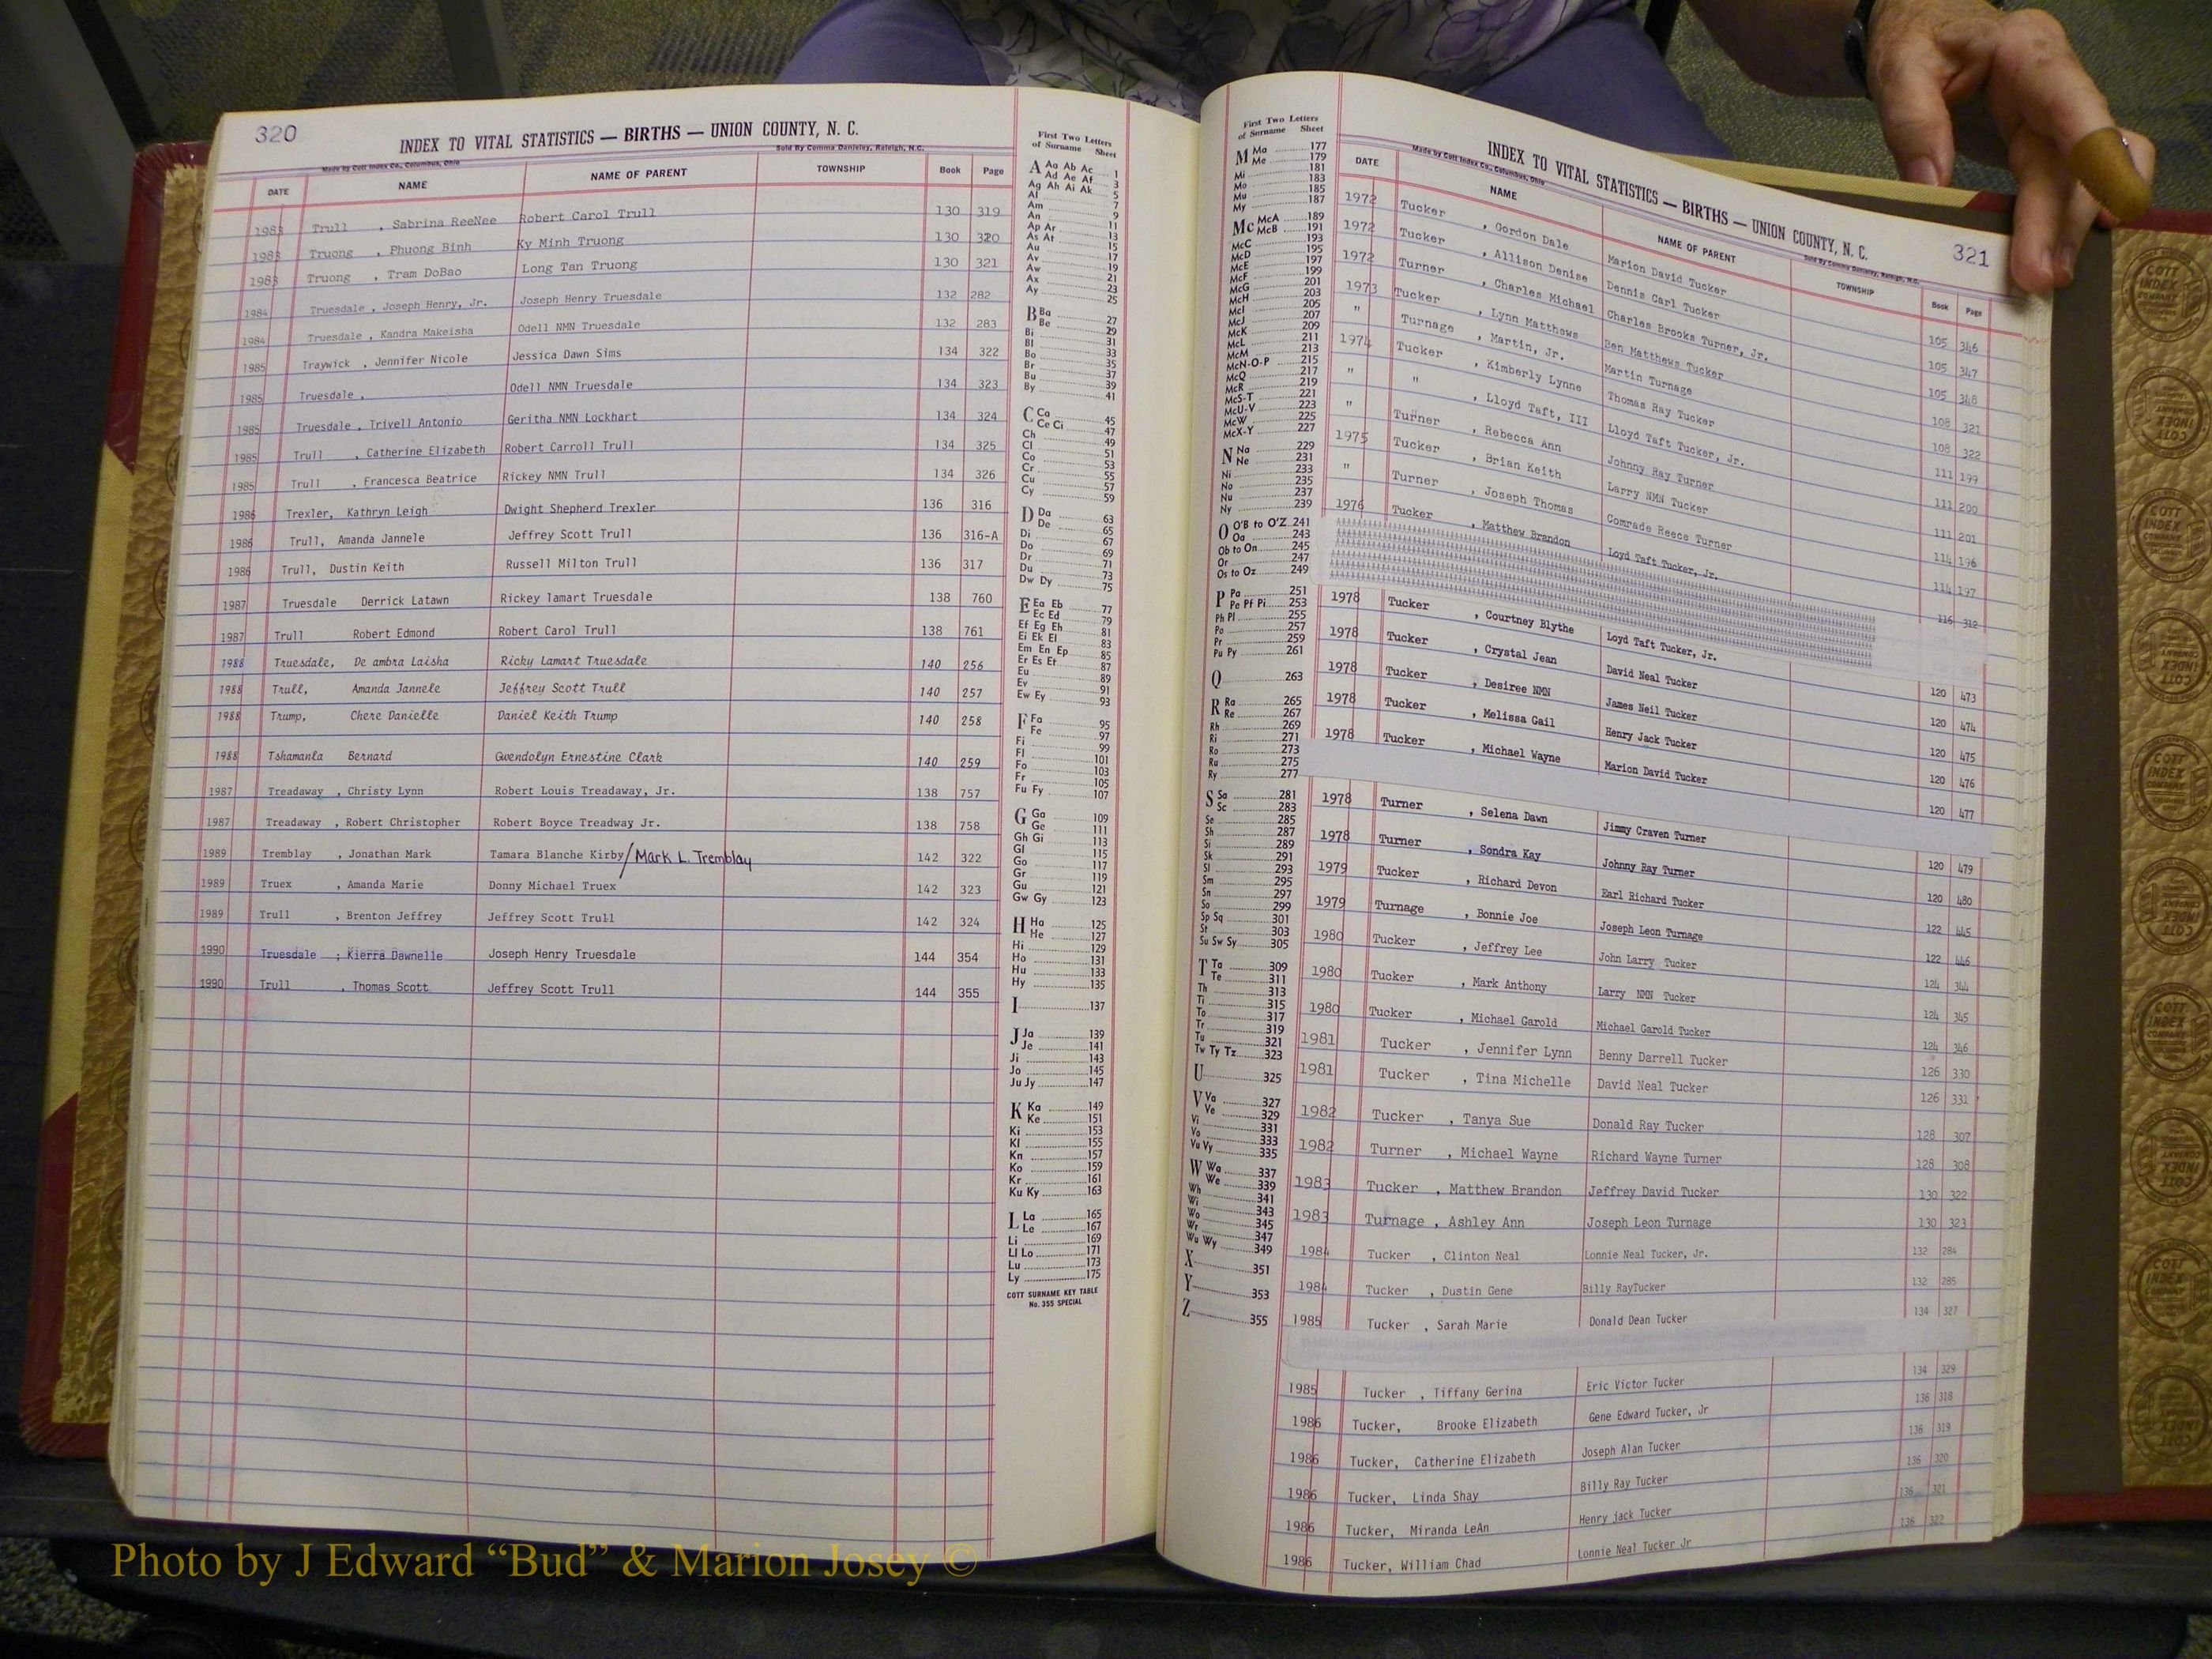 320
INDEX TO VITAL STATISTICS — BIRTHS — UNION COUNTY, N. C.
Made by Cott Index Co., Columbus, Ohio
Sold By Comma Danieley, Raleigh, N.C.
DATE NAME NAME OF PARENT TOWNSHIP Book Page
1983 Trull , Sabrina ReeNee Robert Carol Trull 130 319
1983 Truong , Phuong Binh Ky Minh Truong 130 320
1983 Truong , Tram DoBao Long Tan Truong 130 321
1984 Truesdale , Joseph Henry, Jr. Joseph Henry Truesdale 132 282
1984 Truesdale , Kandra Makeisha Odell NMN Truesdale 132 283
1985 Traywick , Jennifer Nicole Jessica Dawn Sims 134 322
1985 Truesdale , Odell NMN Truesdale 134 323
1985 Truesdale , Trivell Antonio Geritha NMN Lockhart 134 324
1985 Trull , Catherine Elizabeth Robert Carroll Trull 134 325
1985 Trull , Francesca Beatrice Rickey NMN Trull 134 326
1986 Trexler, Kathryn Leigh Dwight Shepherd Trexler 136 316
1986 Trull, Amanda Jannele Jeffrey Scott Trull 136 316-A
1986 Trull, Dustin Keith Russell Milton Trull 136 317
1987 Truesdale Derrick Latawn Rickey lamart Truesdale 138 760
1987 Trull Robert Edmond Robert Carol Trull 138 761
1988 Truesdale, De ambra Laisha Ricky Lamart Truesdale 140 256
1988 Trull, Amanda Jannele Jeffrey Scott Trull 140 257
1988 Trump, Chere Danielle Daniel Keith Trump 140 258
1988 Tshamanla Bernard Gwendolyn Ernestine Clark 140 259
1987 Treadaway , Christy Lynn Robert Louis Treadaway, Jr. 138 757
1987 Treadaway , Robert Christopher Robert Boyce Treadway Jr. 138 758
1989 Tremblay , Jonathan Mark Tamara Blanche Kirby/Mark L. Tremblay 142 322
1989 Truex , Amanda Marie Donny Michael Truex 142 323
1989 Trull , Brenton Jeffrey Jeffrey Scott Trull 142 324
1990 Truesdale , Kierra Dawnelle Joseph Henry Truesdale 144 354
1990 Trull , Thomas Scott Jeffrey Scott Trull 144 355
First Two Letters
of Surname Sheet
A Aa Ab Ac 1
Ad Ae Af 3
Ag Ah Ai Ak 5
Al 7
Am 9
An 11
Ap Ar 13
As At 15
Au 17
Av 19
Aw 21
Ax 23
Ay 25
B Ba 27
Be 29
Bi 31
Bl 33
Bo 35
Br 37
Bu 39
By 41
C Ca 45
Ce Ci 47
Ch 49
Cl 51
Co 53
Cr 55
Cu 57
Cy 59
D Da 63
De 65
Di 67
Do 69
Dr 71
Du 73
Dw Dy 75
E Ea Eb 77
Ec Ed 79
Ef Eg Eh 81
Ei Ek El 83
Em En Ep 85
Er Es Et 87
Eu 89
Ev 91
Ew Ey 93
F Fa 95
Fe 97
Fi 99
Fl 101
Fo 103
Fr 105
Fu Fy 107
G Ga 109
Ge 111
Gh Gi 113
Gl 115
Go 117
Gr 119
Gu 121
Gw Gy 123
H Ha 125
He 127
Hi 129
Ho 131
Hu 133
Hy 135
I 137
J Ja 139
Je 141
Ji 143
Jo 145
Ju Jy 147
K Ka 149
Ke 151
Ki 153
Kl 155
Kn 157
Ko 159
Kr 161
Ku Ky 163
L La 165
Le 167
Li 169
Ll Lo 171
Lu 173
Ly 175
COTT SURNAME KEY TABLE
No. 355 SPECIAL
First Two Letters
of Surname Sheet
M Ma 177
Me 179
Mi 181
Mo 183
Mu 185
My 187
Mc McA 189
McB 191
McC 193
McD 195
McE 197
McF 199
McG 201
McH 203
McI 205
McJ 207
McK 209
McL 211
McM 213
McN-O-P 215
McQ 217
McR 219
McS-T 221
McU-V 223
McW 225
McX-Y 227
N Na 229
Ne 231
Ni 233
No 235
Nu 237
Ny 239
O O'B to O'Z 241
Oa 243
Ob to On 245
Or 247
Os to Oz 249
P Pa 251
Pe Pf Pi 253
Ph Pl 255
Po 257
Pr 259
Pu Py 261
Q 263
R Ra 265
Re 267
Rh 269
Ri 271
Ro 273
Ru 275
Ry 277
S Sa 281
Sc 283
Se 285
Sh 287
Si 289
Sk 291
Sl 293
Sm 295
Sn 297
So 299
Sp Sq 301
St 303
Su Sw Sy 305
T Ta 309
Te 311
Th 313
Ti 315
To 317
Tr 319
Tu 321
Tw Ty Tz 323
U 325
V Va 327
Ve 329
Vi 331
Vo 333
Vu Vy 335
W Wa 337
We 339
Wh 341
Wi 343
Wo 345
Wr 347
Wu Wy 349
X 351
Y 353
Z 355
321
INDEX TO VITAL STATISTICS — BIRTHS — UNION COUNTY, N. C.
Made by Cott Index Co., Columbus, Ohio
Sold By Comma Danieley, Raleigh, N.C.
DATE NAME NAME OF PARENT TOWNSHIP Book Page
1972 Tucker , Gordon Dale Marion David Tucker 105 346
1972 Tucker , Allison Denise Dennis Carl Tucker 105 347
1972 Turner , Charles Michael Charles Brooks Turner, Jr. 105 348
1973 Tucker , Lynn Matthews Ben Matthews Tucker 108 321
" Turnage , Martin, Jr. Martin Turnage 108 322
1974 Tucker , Kimberly Lynne Thomas Ray Tucker 111 199
" " , Lloyd Taft, III Lloyd Taft Tucker, Jr. 111 200
" Turner , Rebecca Ann Johnny Ray Turner 111 201
1975 Tucker , Brian Keith Larry NMN Tucker 114 196
" Turner , Joseph Thomas Comrade Reece Turner 114 197
1976 Tucker , Matthew Brandon Loyd Taft Tucker, Jr. 116 312
1978 Tucker , Courtney Blythe Loyd Taft Tucker, Jr. 120 473
1978 Tucker , Crystal Jean David Neal Tucker 120 474
1978 Tucker , Desiree NMN James Neil Tucker 120 475
1978 Tucker , Melissa Gail Henry Jack Tucker 120 476
1978 Tucker , Michael Wayne Marion David Tucker 120 477
1978 Turner , Selena Dawn Jimmy Craven Turner 120 479
1978 Turner , Sondra Kay Johnny Ray Turner 120 480
1979 Tucker , Richard Devon Earl Richard Tucker 122 445
1979 Turnage , Bonnie Joe Joseph Leon Turnage 122 446
1980 Tucker , Jeffrey Lee John Larry Tucker 124 344
1980 Tucker , Mark Anthony Larry NMN Tucker 124 345
1980 Tucker , Michael Garold Michael Garold Tucker 124 346
1981 Tucker , Jennifer Lynn Benny Darrell Tucker 126 330
1981 Tucker , Tina Michelle David Neal Tucker 126 331
1982 Tucker , Tanya Sue Donald Ray Tucker 128 307
1982 Turner , Michael Wayne Richard Wayne Turner 128 308
1983 Tucker , Matthew Brandon Jeffrey David Tucker 130 322
1983 Turnage , Ashley Ann Joseph Leon Turnage 130 323
1984 Tucker , Clinton Neal Lonnie Neal Tucker, Jr. 132 284
1984 Tucker , Dustin Gene Billy RayTucker 132 285
1985 Tucker , Sarah Marie Donald Dean Tucker 134 327
1985 Tucker , Tiffany Gerina Eric Victor Tucker 134 329
1986 Tucker, Brooke Elizabeth Gene Edward Tucker, Jr 136 318
1986 Tucker, Catherine Elizabeth Joseph Alan Tucker 136 319
1986 Tucker, Linda Shay Billy Ray Tucker 136 320
1986 Tucker, Miranda LeAn Henry jack Tucker 136 321
1986 Tucker, William Chad Lonnie Neal Tucker Jr 136 322
COTT
INDEX
COMPANY
Photo by J Edward “Bud” & Marion Josey ©